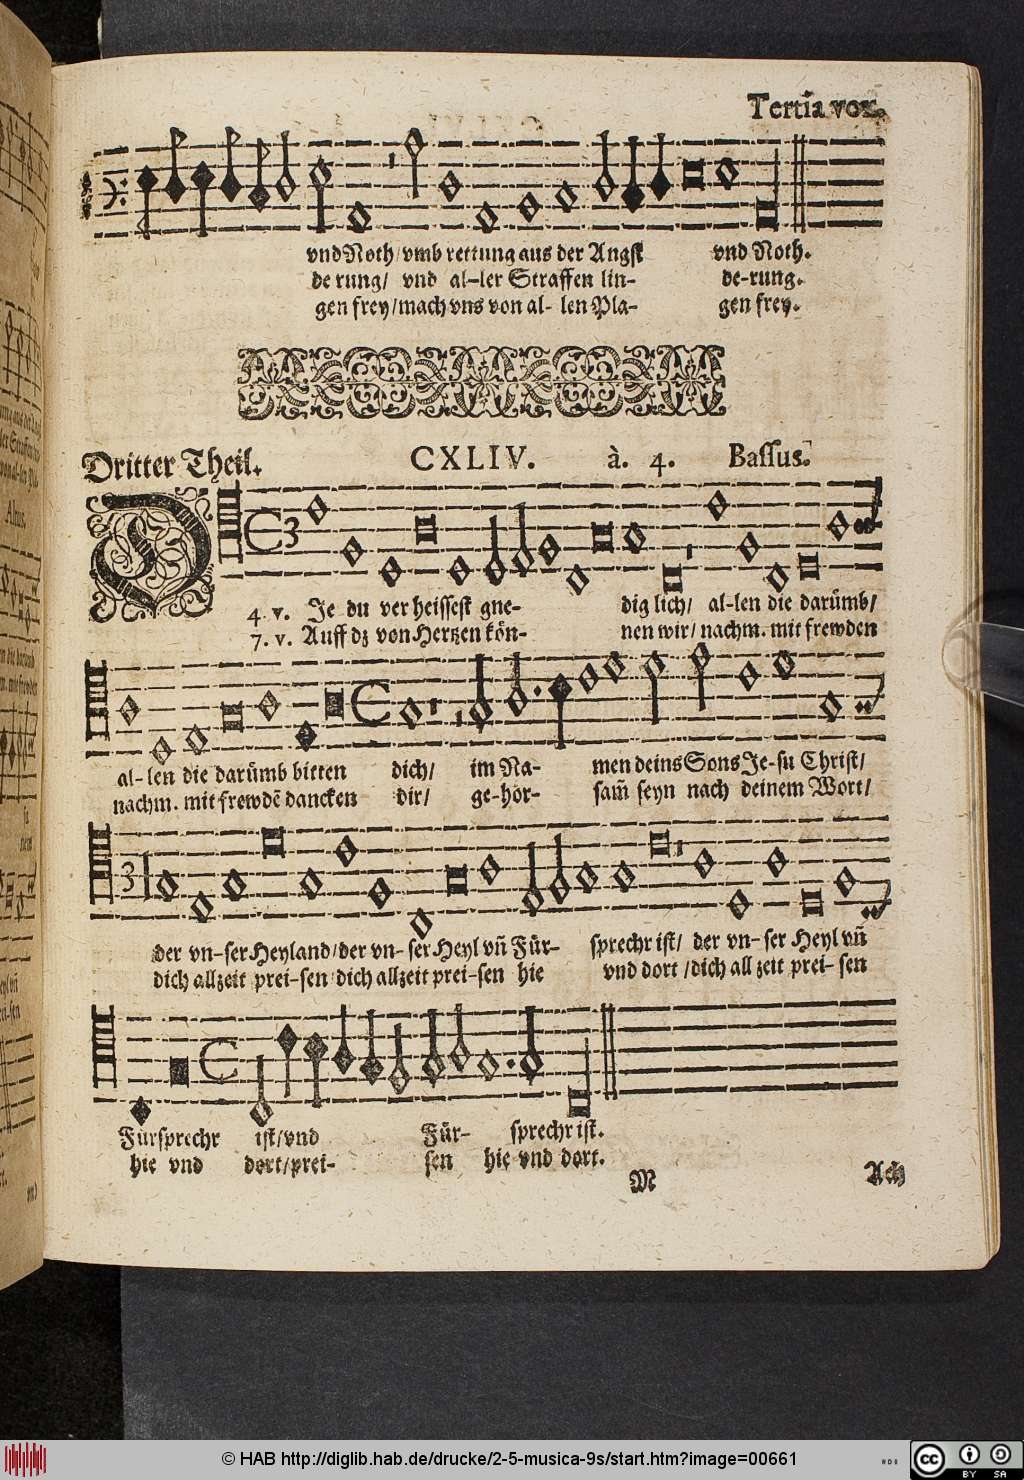 Tertia vox.
vnd Noth/vmb rettung aus der Angst vnd Noth.
de rung/ vnd al-ler Straffen lin- de-rung.
gen frey/mach vns von al- len Pla- gen frey.
Dritter Theil. CXLIV. à. 4. Bassus.
4. v. Je du ver heissest gne- dig lich/ al-len die darümb/
7. v. Auff dz von Hertzen kön- nen wir/ nachm. mit frewden
al-len die darümb bitten dich/ im Na- men deins Sons Je-su Christ/
nachm. mit frewdẽ dancken dir/ ge-hor- sam̃ seyn nach deinem Wort/
der vn-ser Heyland/der vn- ser Heyl vñ Für- sprechr ist/ der vn- ser Heyl vñ
dich allzeit prei-sen/dich allzeit prei-sen hie vnd dort /dich all zeit prei- sen
Fürsprechr ist/vnd Für- sprechr ist.
hie vnd dort/prei- sen hie vnd dort.
M Ach
© HAB http://diglib.hab.de/drucke/2-5-musica-9s/start.htm?image=00661
cc BY SA